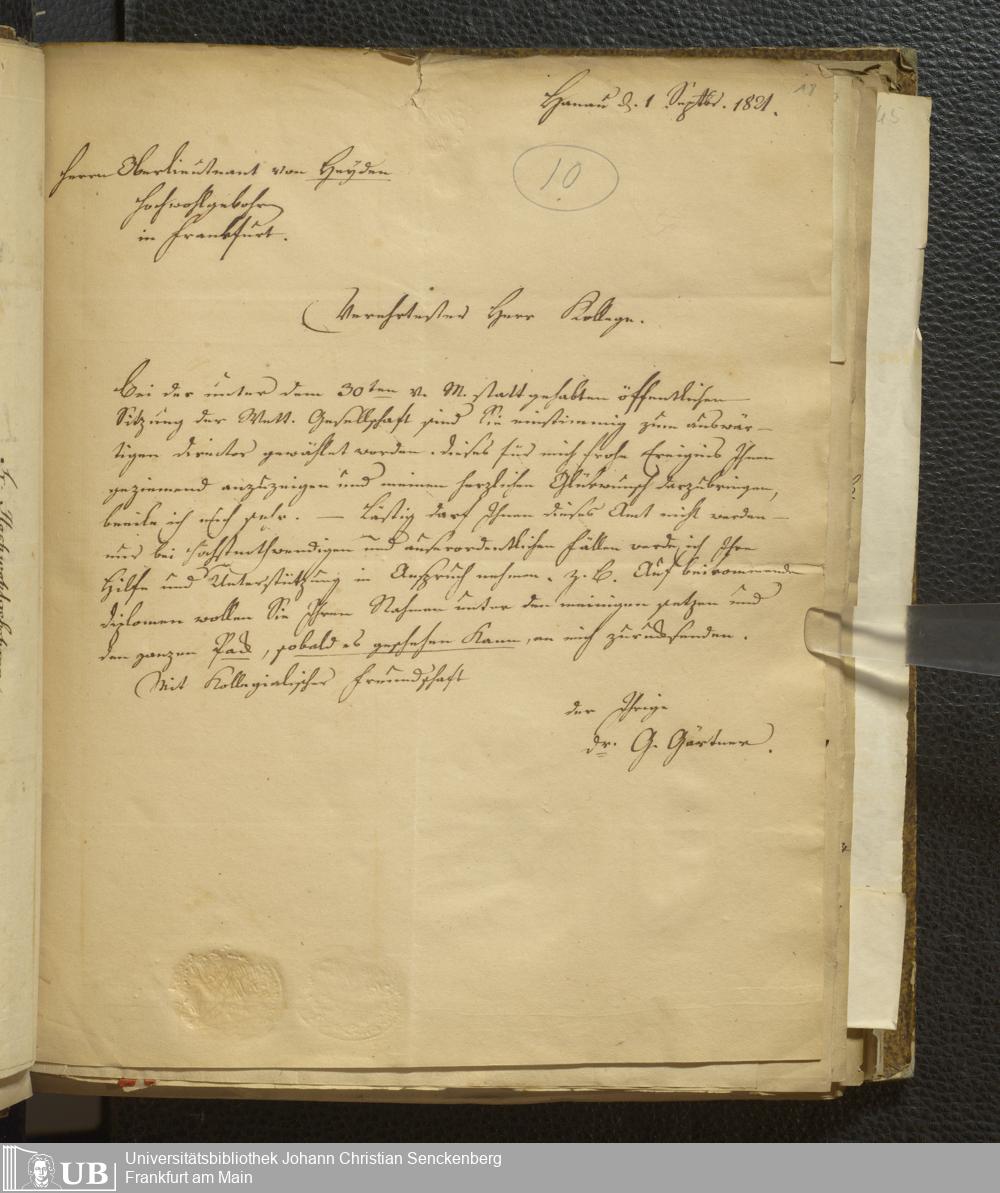 Hanau d. 1 Septbr. 1821.
Herrn Oberlieutnant von Heyden
Hochwohlgebohrn
in Frankfurt.
10
Verehrtester Herr Kollege.
Bei der unter dem 30ten v. M. statt gehabten öffentlichen
Sitzung der Wett. Gesellschaft sind Sie einstimmig zum auswär-
tigen Director gewählet worden. Dieses für mich frohe Ereignis Ihnen
geziemend anzuzeigen und meinen herzlichen Glükwunsch darzubringen,
beeile ich mich sehr. — Lästig darf Ihnen dieses Amt nicht werden —
nur bei höchstnothwendigen und auserordentlichen Fällen werde ich Ihre
Hilfe und Unterstützung in Anspruch nehmen. z. B. Auf beikommende
Diplomen wollen Sie Ihren Nahmen unter den meinigen setzen und
den ganzen Pack, sobald es geschehen kann, an mich zurücksenden.
Mit Kollegialischer Freundschaft
der Ihrige
dr. G. Gärtner.
UB
Universitätsbibliothek Johann Christian Senckenberg
Frankfurt am Main